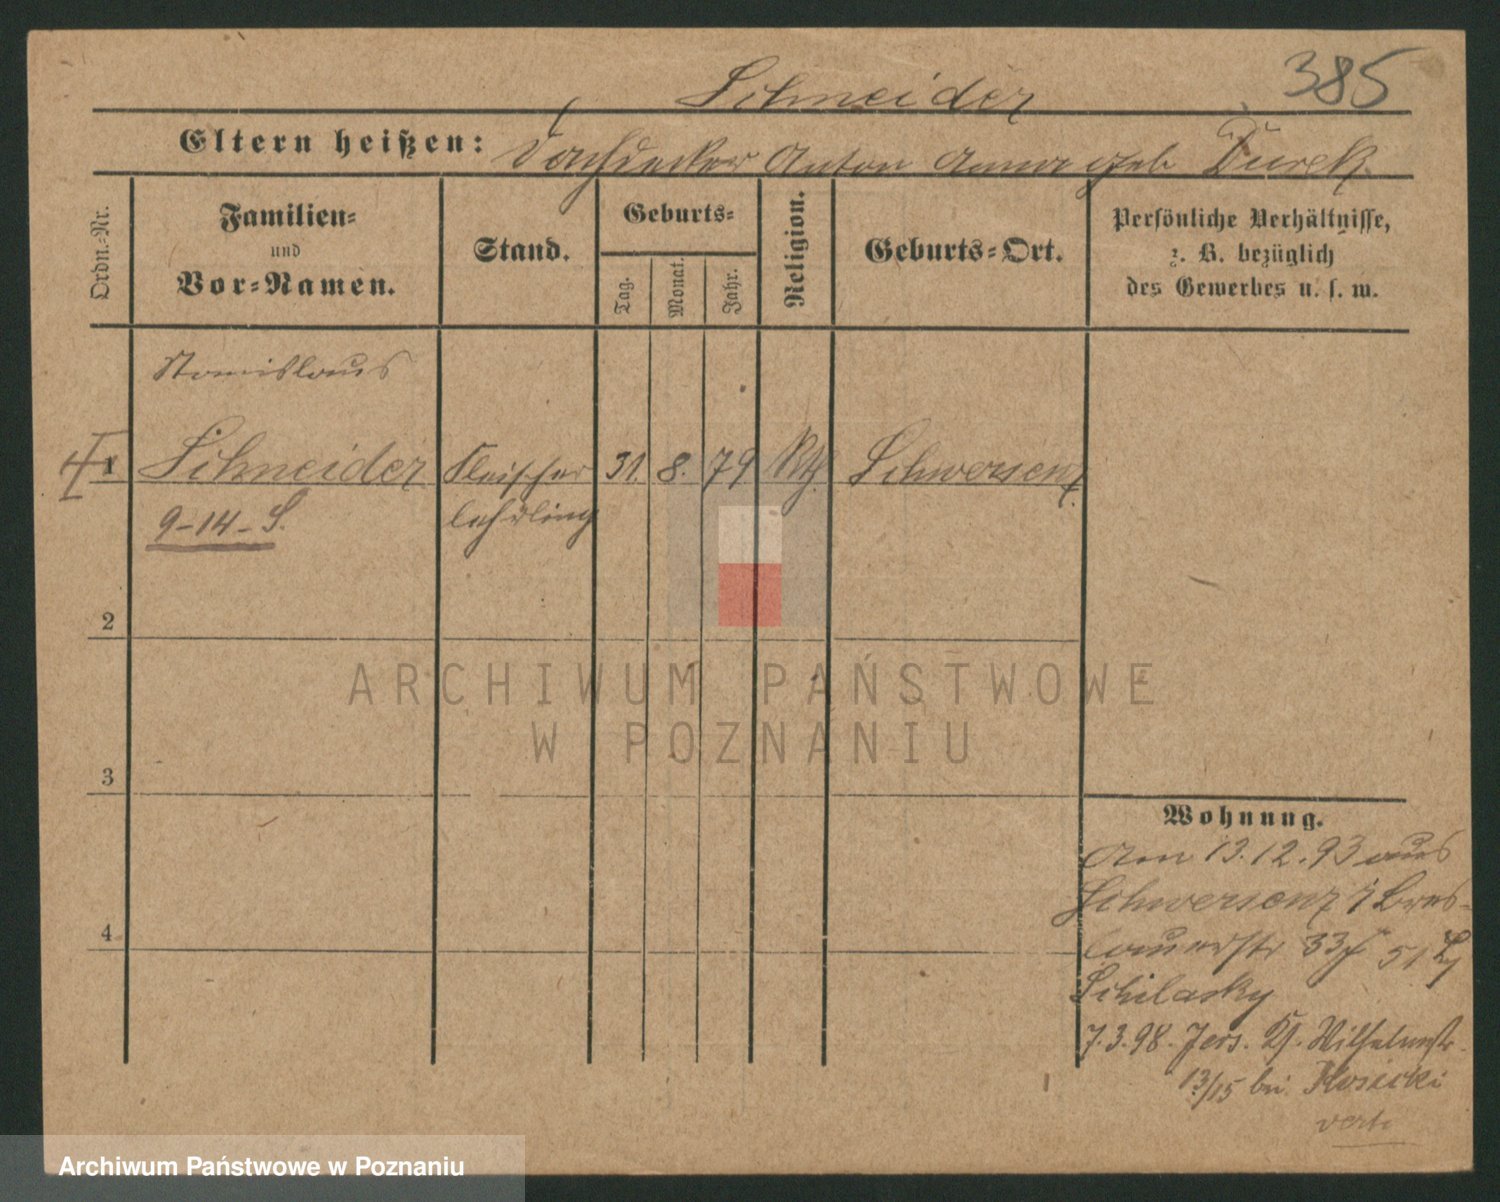 385
Schneider
Eltern heißen: Dachdecker Anton Anna geb Durek
Ordn.-Nr.
Familien-
und
Vor-Namen.
Stand.
Geburts-
Tag.
Monat.
Jahr.
Religion.
Geburts-Ort.
Persönliche Verhältnisse,
z. B. bezüglich
des Gewerbes u. s. w.
Stanislaus
1 Schneider Fleischer 31. 8. 79 Kth. Schwersenz
9-14-S. lehrling
2
3
4
Wohnung.
Am 13.12.93 aus
Schwersenz Bres-
lauerstr 33
Schilasky
7.3.98. Jers. Wilhelmstr.
13/15 bei Kosicki
vert.
ARCHIWUM PAŃSTWOWE
W POZNANIU
Archiwum Państwowe w Poznaniu